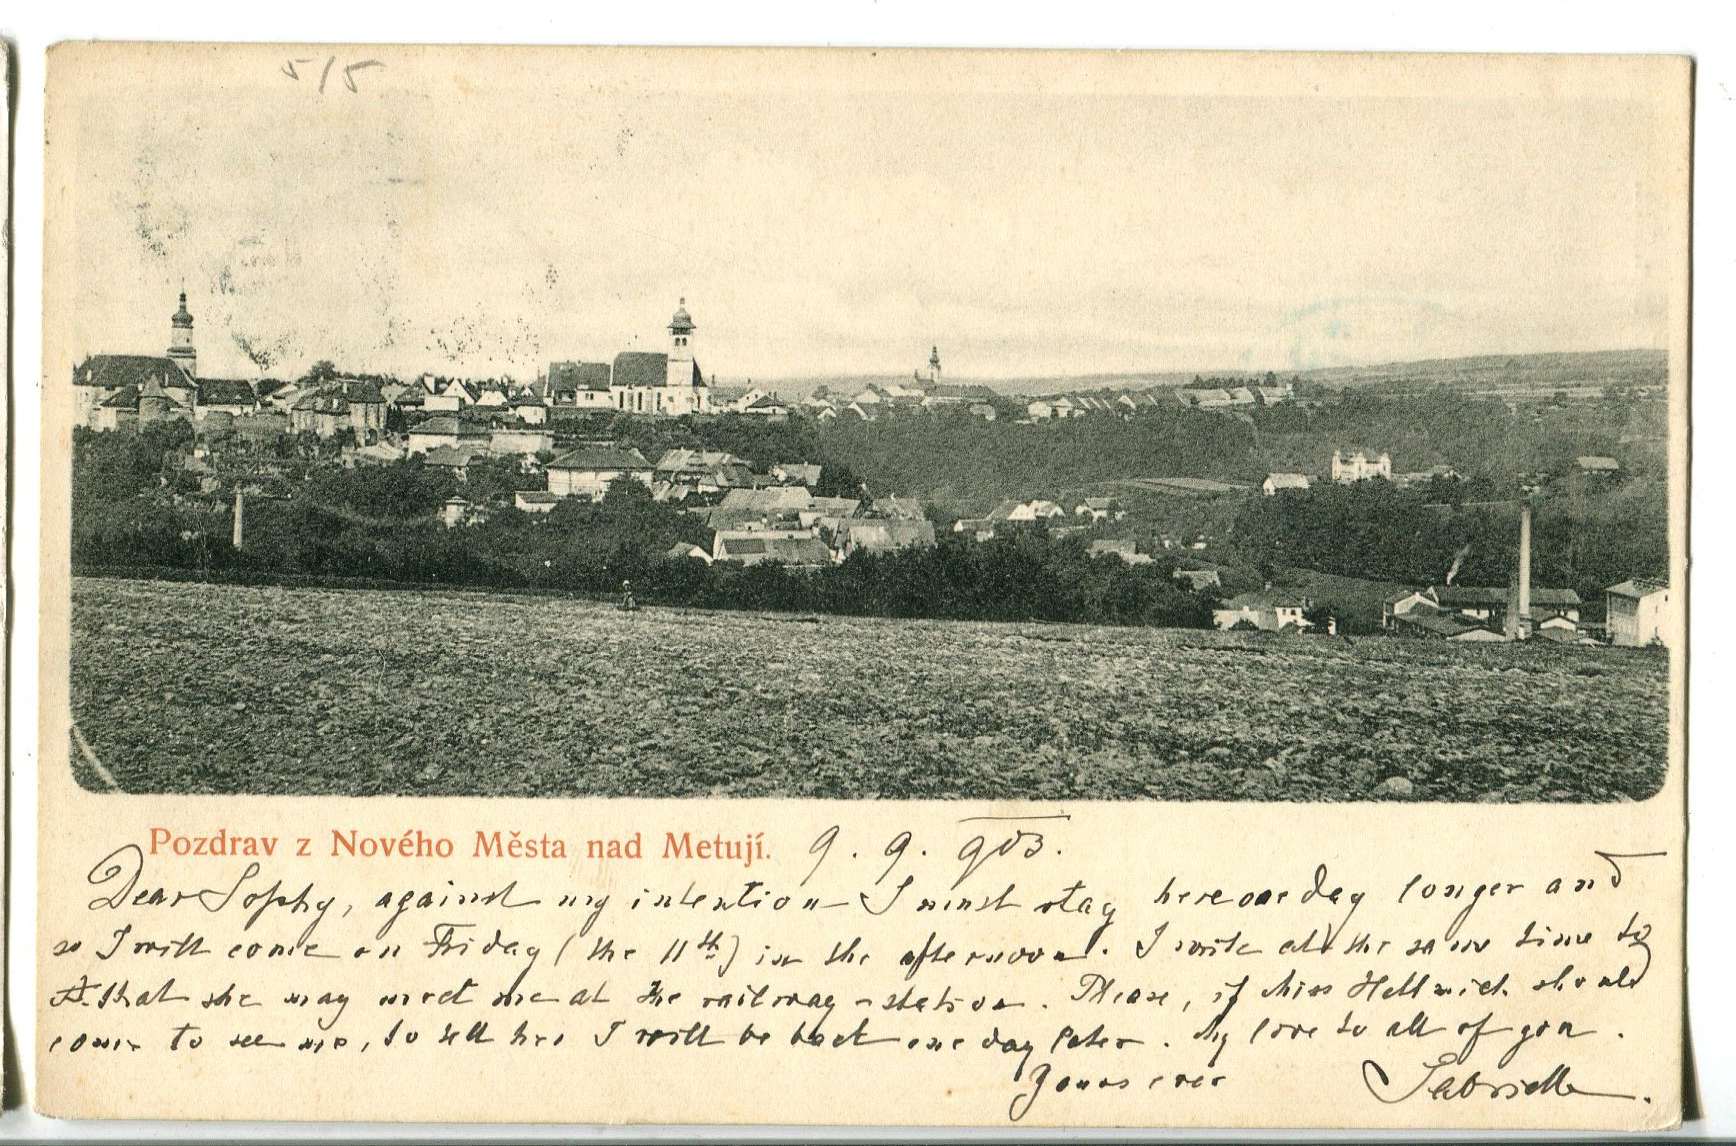 5/5
Pozdrav z Nového Města nad Metují. 9. 9. 903.
Dear Sophy, against my intention I must stay here one day longer and
so I will come on Friday (the 11th) in the afternoon. I write at the same time to
A. that she may meet me at the railway-station. Please, if Miss Hellmich should
come to see me, to tell her I will be back one day later. My love to all of you.
Yours ever Gabrielle.